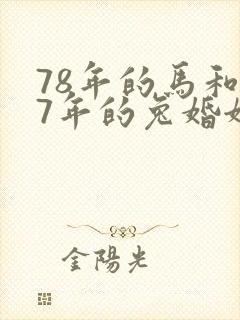 78年的馬和
7年的兔婚姻
金陽光